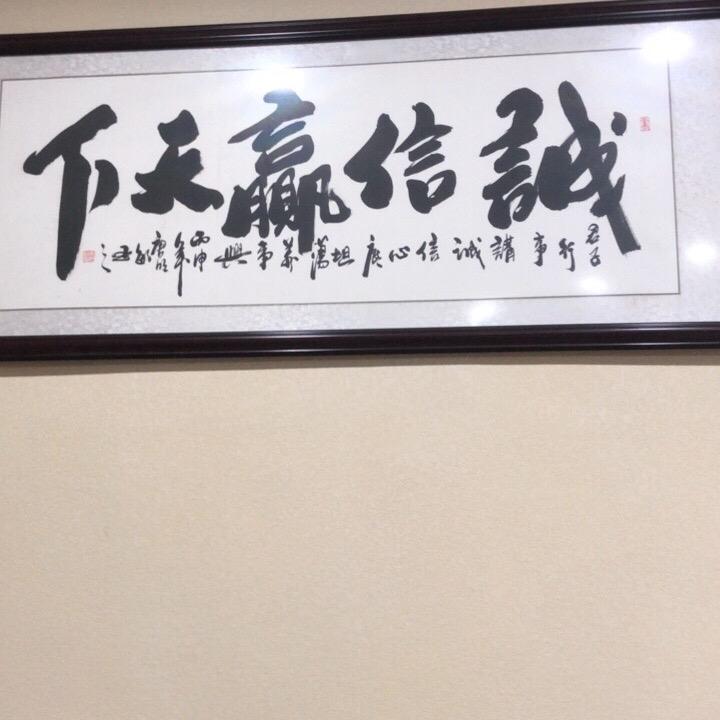 誠信贏天下
君子行事講誠信心底坦蕩萬事興丙申年